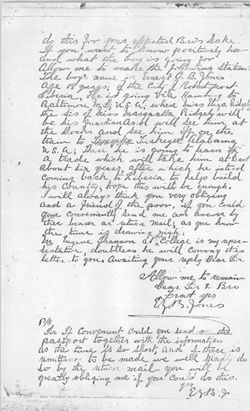 do this for your afflicted Bros Sake.
If you want to know positively how
and what the boy is going for
Allow me to make the following statem
The boy's name is G. B. Jones
Age 18 years, of the City of Robertsport
Liberia, He is going via Hamburg to
Baltimore M.D, U.S.A, where Miss Ridgly
the Sis of Miss Margaretta Ridgely will
be his Guardian. I will see him at
the Docks and see him off on the
train to Tuskegee Alabama
U.S.A, There he is going to learn
a trade which will take him at least
about six years after which he intend
coming back to Liberia, to help build
his Country, hope this will be enough.
I will always think you very obliging
and a friend of the poor, if you could
you conveniently send me an answer by
the bearer on return mail, as you know
the time is drawing nigh.
Mr Eugene Shannon at College is my
sentator, doubtless he will convey this
letter to you, awaiting your reply Dear Sir
Allow me to remain
Dear Sir & Bro
Truat yes
E. G. B. Jones
P/s
If it Convenient Could you send me
passport together with the information
as the time is so short, and if there is
remittance to be made we will gladly do
so by the return mail, you will be
greatly obliging me if you Could do this.
Yrs
E G. B. J.